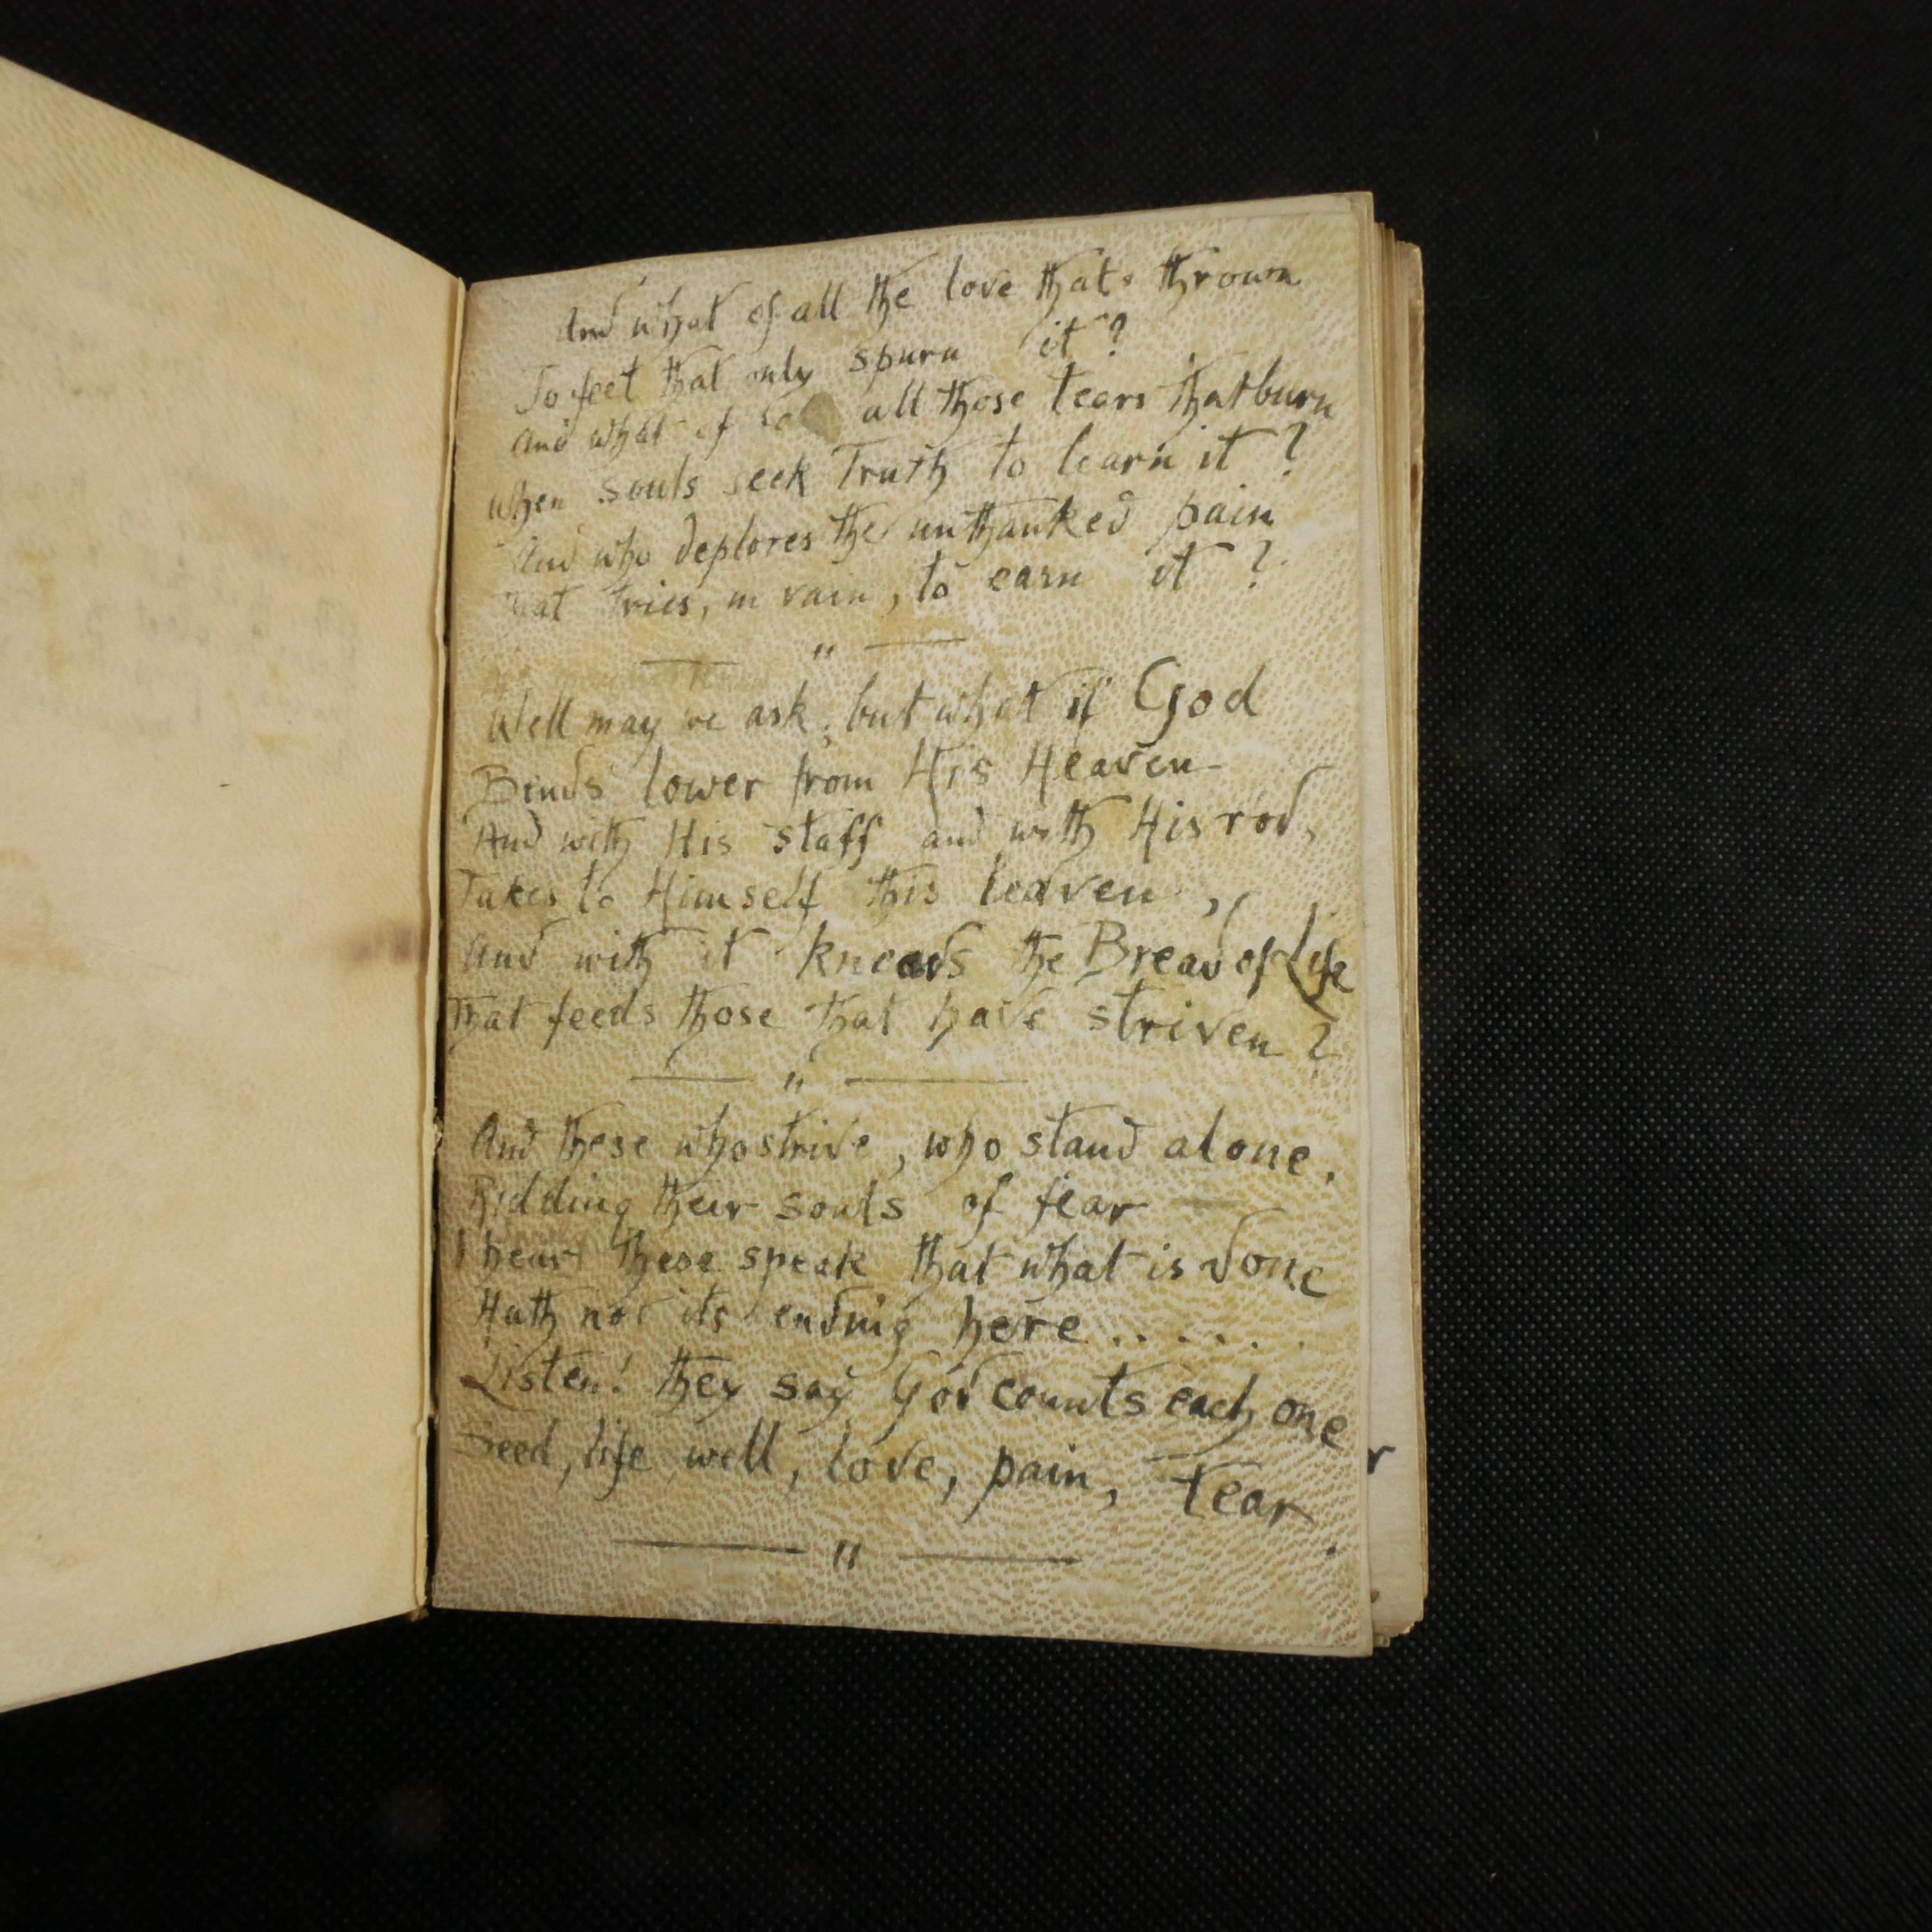 And what of all the love that's thrown
To feet that only spurn it?
And what of all those tears that burn
When souls seek Truth to learn it?
And who deplores the unthanked pain
That tries, in vain, to earn it?
"
Well may we ask, but what if God
Bends lower from His Heaven-
And with His staff and with His rod,
Takes to Himself this leaven,
And with it kneads the Bread of Life
That feeds those that have striven?
"
And these who strive, who stand alone,
Ridding their souls of fear —
I hear these speak that what is done
Hath not its ending here......
Listen! they say God counts each one
Deed, life well, love, pain, tear.
"
r